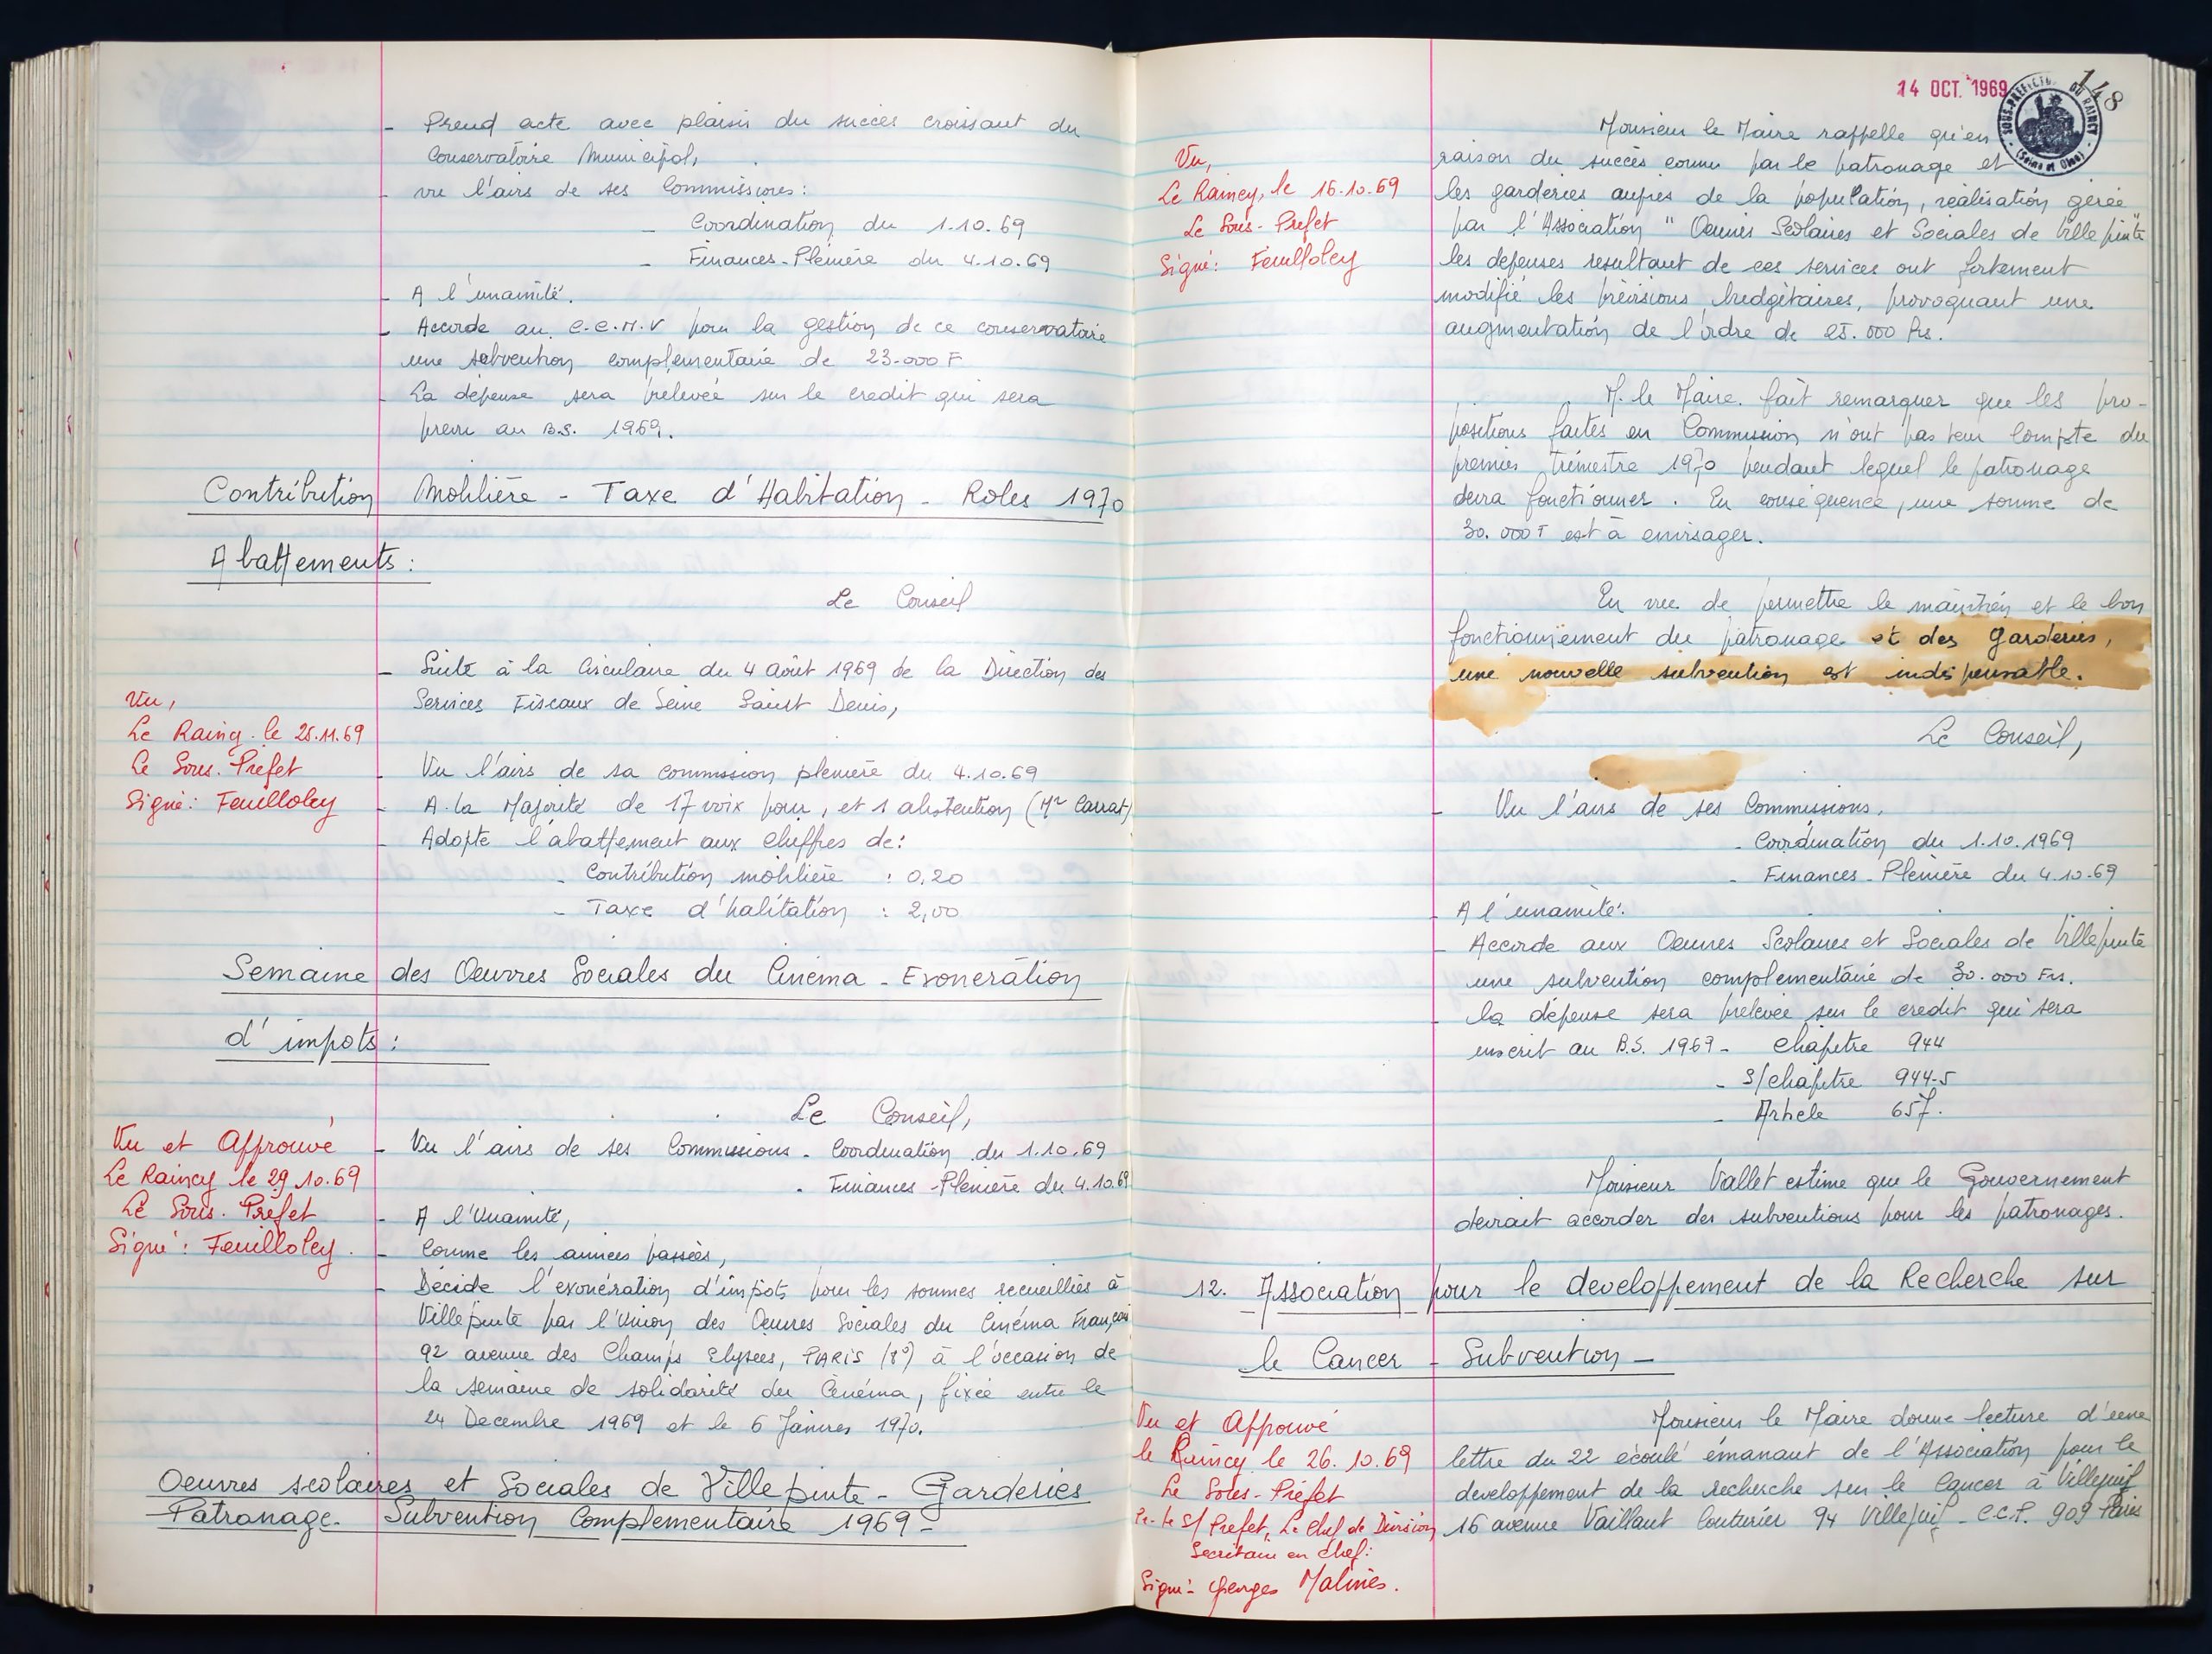 - Prend acte avec plaisir du succès croissant du
Conservatoire Municipal,
- vu l'avis de ses Commissions :
- Coordination du 1.10.69
- Finances-Plénière du 4.10.69
- A l'unamité.
- Accorde au C.C.M.V pour la gestion de ce conservatoire
une subvention complémentaire de 23.000 F
- La dépense sera prélevée sur le crédit qui sera
prevu au B.S. 1969.
Contribution Mobilière - Taxe d'Habitation - Roles 1970
Abattements :
Le Conseil
- Suite à la Circulaire du 4 Août 1969 de la Direction des
Services Fiscaux de Seine Saint Denis,
Vu,
Le Raincy. le 25.11.69
Le Sous. Préfet
Signé : Feuilloley
- Vu l'avis de sa commission plenière du 4.10.69
- A la Majorité de 17 voix pour, et 1 abstention (Mr Carrat)
- Adopte l'abattement aux chiffres de :
- Contribution mobilière : 0,20
- Taxe d'habitation : 2,00
Semaine des Oeuvres Sociales du Cinéma - Exonération
d'impots :
Le Conseil,
Vu et Approuvé
Le Raincy le 29.10.69
Le Sous. Préfet
Signé : Feuilloley.
- Vu l'avis de ses Commissions - Coordination du 1.10.69
- Finances-Plenière du 4.10.69
- A l'Unamité,
- Comme les années passées,
- Décide l'exonération d'impôts pour les sommes recueillies à
Villepinte par l'Union des Oeuvres Sociales du Cinéma Français
92 avenue des Champs Elysées, PARIS (8°) à l'occasion de
la semaine de solidarité du Cinéma, fixée entre le
24 Decembre 1969 et le 6 Janvier 1970.
Oeuvres scolaires et Sociales de Villepinte - Garderies
Patronage - Subvention Complémentaire 1969 -
14 OCT. 1969
148
SOUS-PRÉFECTURE DU RAINCY
(Seine et Oise)
Monsieur le Maire rappelle qu'en
raison du succès connu par le patronage et
les garderies auprès de la population, réalisation gérée
par l'Association "Oeuvres Scolaires et Sociales de Villepinte"
les dépenses resultant de ces services ont fortement
modifié les prévisions budgétaires, provoquant une
augmentation de l'ordre de 25.000 frs.
Vu,
Le Raincy, le 16.10.69
Le Sous-Préfet
Signé : Feuilloley
M. le Maire. fait remarquer que les pro-
positions faites en Commission n'ont pas tenu compte du
premier trimestre 1970 pendant lequel le patronage
devra fonctionner. En conséquence, une somme de
30.000 F est à envisager.
En vue de permettre le maintien et le bon
fonctionnement du patronage et des garderies,
une nouvelle subvention est indispensable.
Le Conseil,
- Vu l'avis de ses Commissions,
- Coordination du 1.10.1969
- Finances-Plénière du 4.10.69
- A l'unamité.
- Accorde aux Oeuvres Scolaires et Sociales de Villepinte
une subvention complémentaire de 30.000 Frs.
- La dépense sera prélevée sur le crédit qui sera
inscrit au B.S. 1969 - Chapitre 944
- S/chapitre 944-5
- Article 657.
Monsieur Vallet estime que le Gouvernement
devrait accorder des subventions pour les patronages.
12. Association pour le developpement de la Recherche sur
le Cancer - Subvention -
Monsieur le Maire donne lecture d'une
lettre du 22 écoulé émanant de l'Association pour le
developpement de la recherche sur le Cancer à Villejuif
16 avenue Vaillant Couturier 94 Villejuif - C.C.P. 909 Paris
Vu et Approuvé
le Raincy le 26.10.69
Le Sous-Préfet
Pr. le S/Préfet, Le Chef de Division,
Secrétaire en chef :
Signé : Georges Malinès.